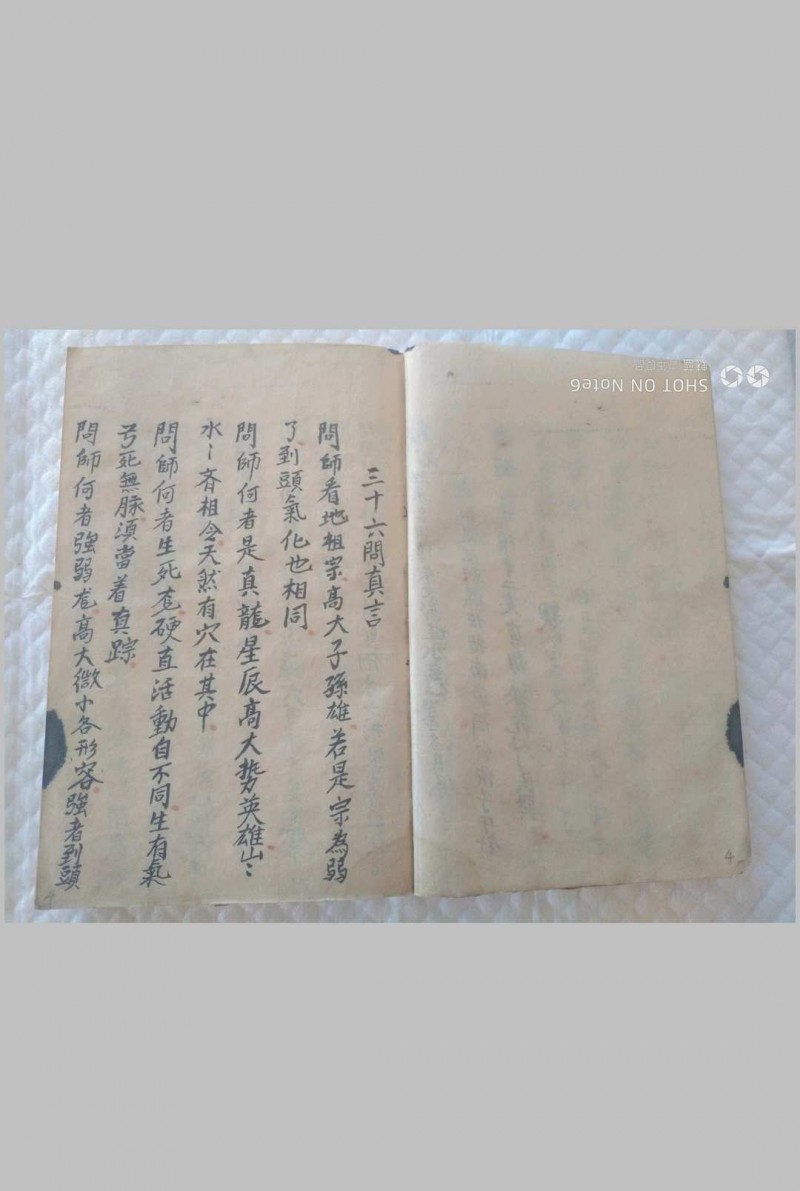 三十六問真言
問師看地祖宗高大子孫雄若是宗為弱
了到頭氣化也相同
問師何者是真龍星辰高大勢英雄山〻
水〻齐相令天然有穴在其中
問師何者生死硬直活動自不同生有氣
死無脉須當着真踪
問師何者強弱高大微小各形容強者到頭
SHOT ON Note6
4